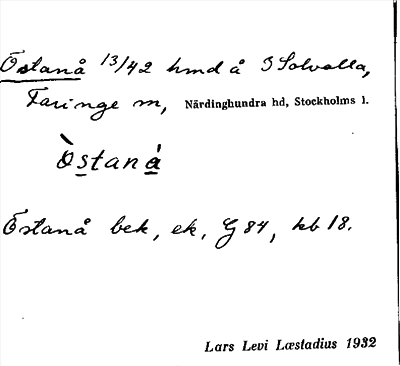 Östanå 13/42 hmd å S Solvalla,
Faringe sn, Närdinghundra hd, Stockholms l.
Òstaná
Östanå bek, ek, G 84, kb 18.
Lars Levi Læstadius 1932